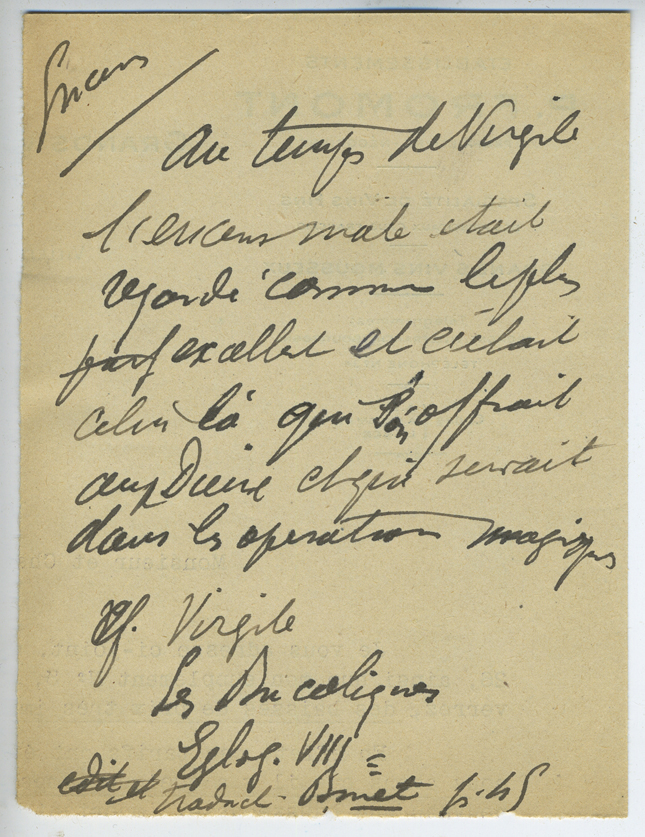 Encens
Au temps de Virgile
l'encens male etait
regardé comme le plus
parf excellet et c'était
celui là que l'on offrait
aux Dieux et qui servait
dans les operation magiques
cf. Virgile
Les Bucoliques
Eglog. VIII
edit et traduct. Binet p. 45